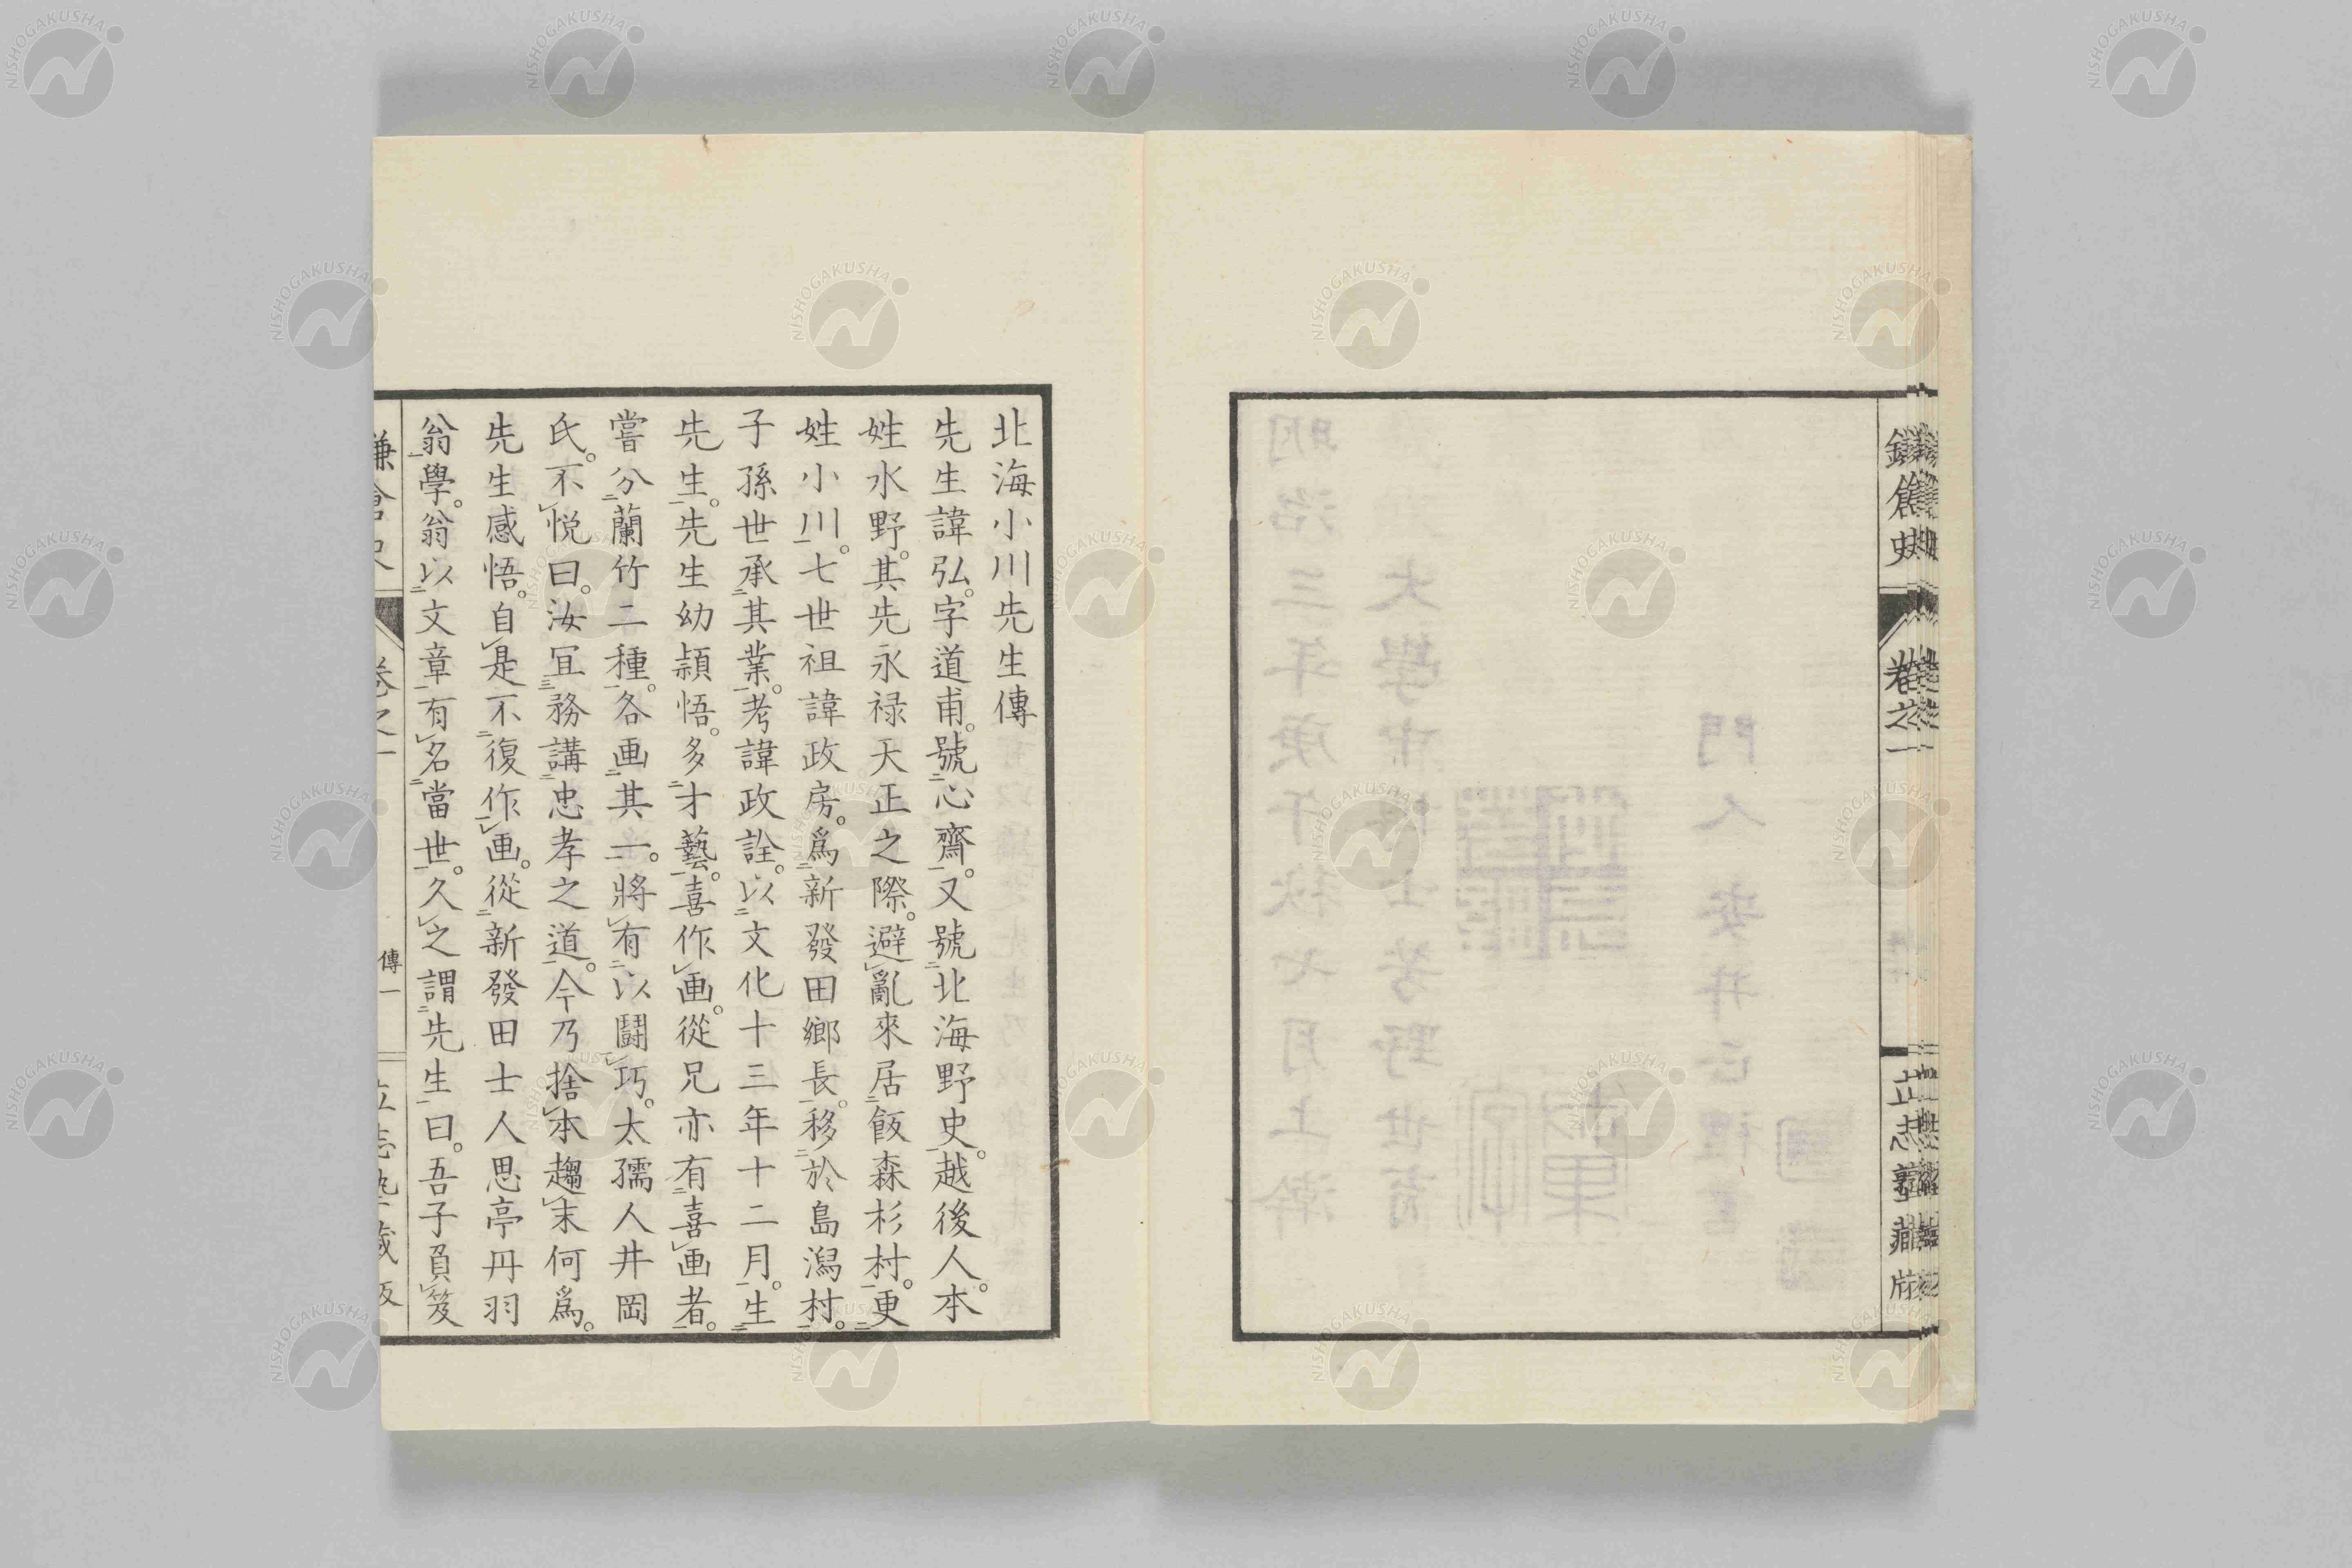 鎌倉史
卷之一
立志
北海小川先生傳
先生諱弘。字道甫。號心齋。又號北海野史。越後人。本
姓水野。其先永禄天正之際。避亂來居飯森杉村。更
姓小川。七世祖諱政房。爲新發田鄉長。移於島潟村。
子孫世承其業。考諱政詮。以文化十三年十二月。生
先生。先生幼頴悟。多才藝。喜作画。從兄亦有喜画者。
嘗分蘭竹二種。各画其一。將有以鬪巧。太孺人井岡
氏。不悦曰。汝宜務講忠孝之道。今乃捨本趨末何爲。
先生感悟。自是不復作画。從新發田士人思亭丹羽
翁學。翁以文章有名當世。久之謂先生曰。吾子負笈
鎌倉史
卷之一
傳一
立志塾藏版
NISHOGAKUSHA